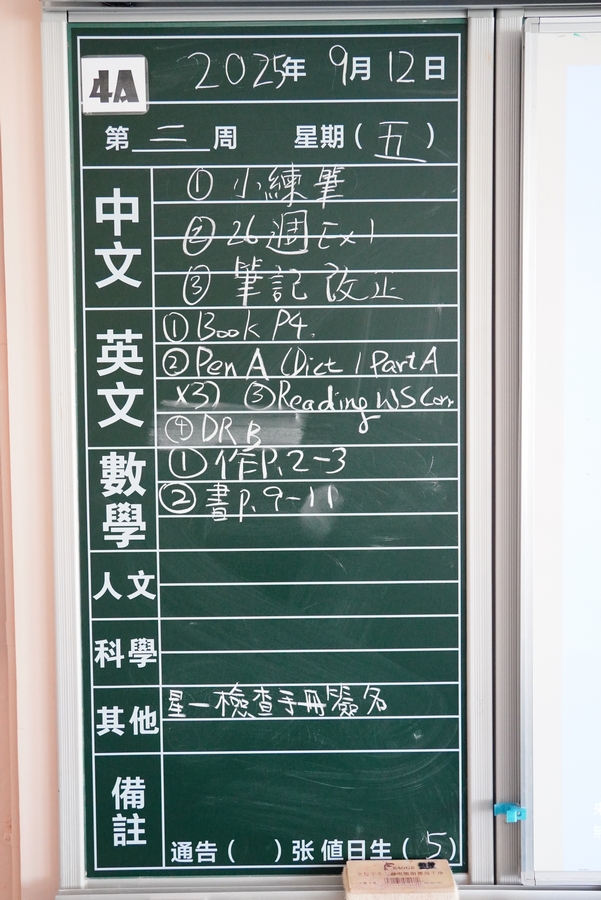 4A
2025年 9月 12日
第 二 周 星期(五)
中文
① 小練筆
② 26週 Ex1
③ 筆記 改正
英文
① Book P4.
② Pen A (Dict 1 Part A
x3) ③ Reading WS Corr
④ DR B
數學
① 作P.2-3
② 書p.9-11
人文
科學
其他
星一檢查手冊簽名
備註
通告( )张 值日生(5)